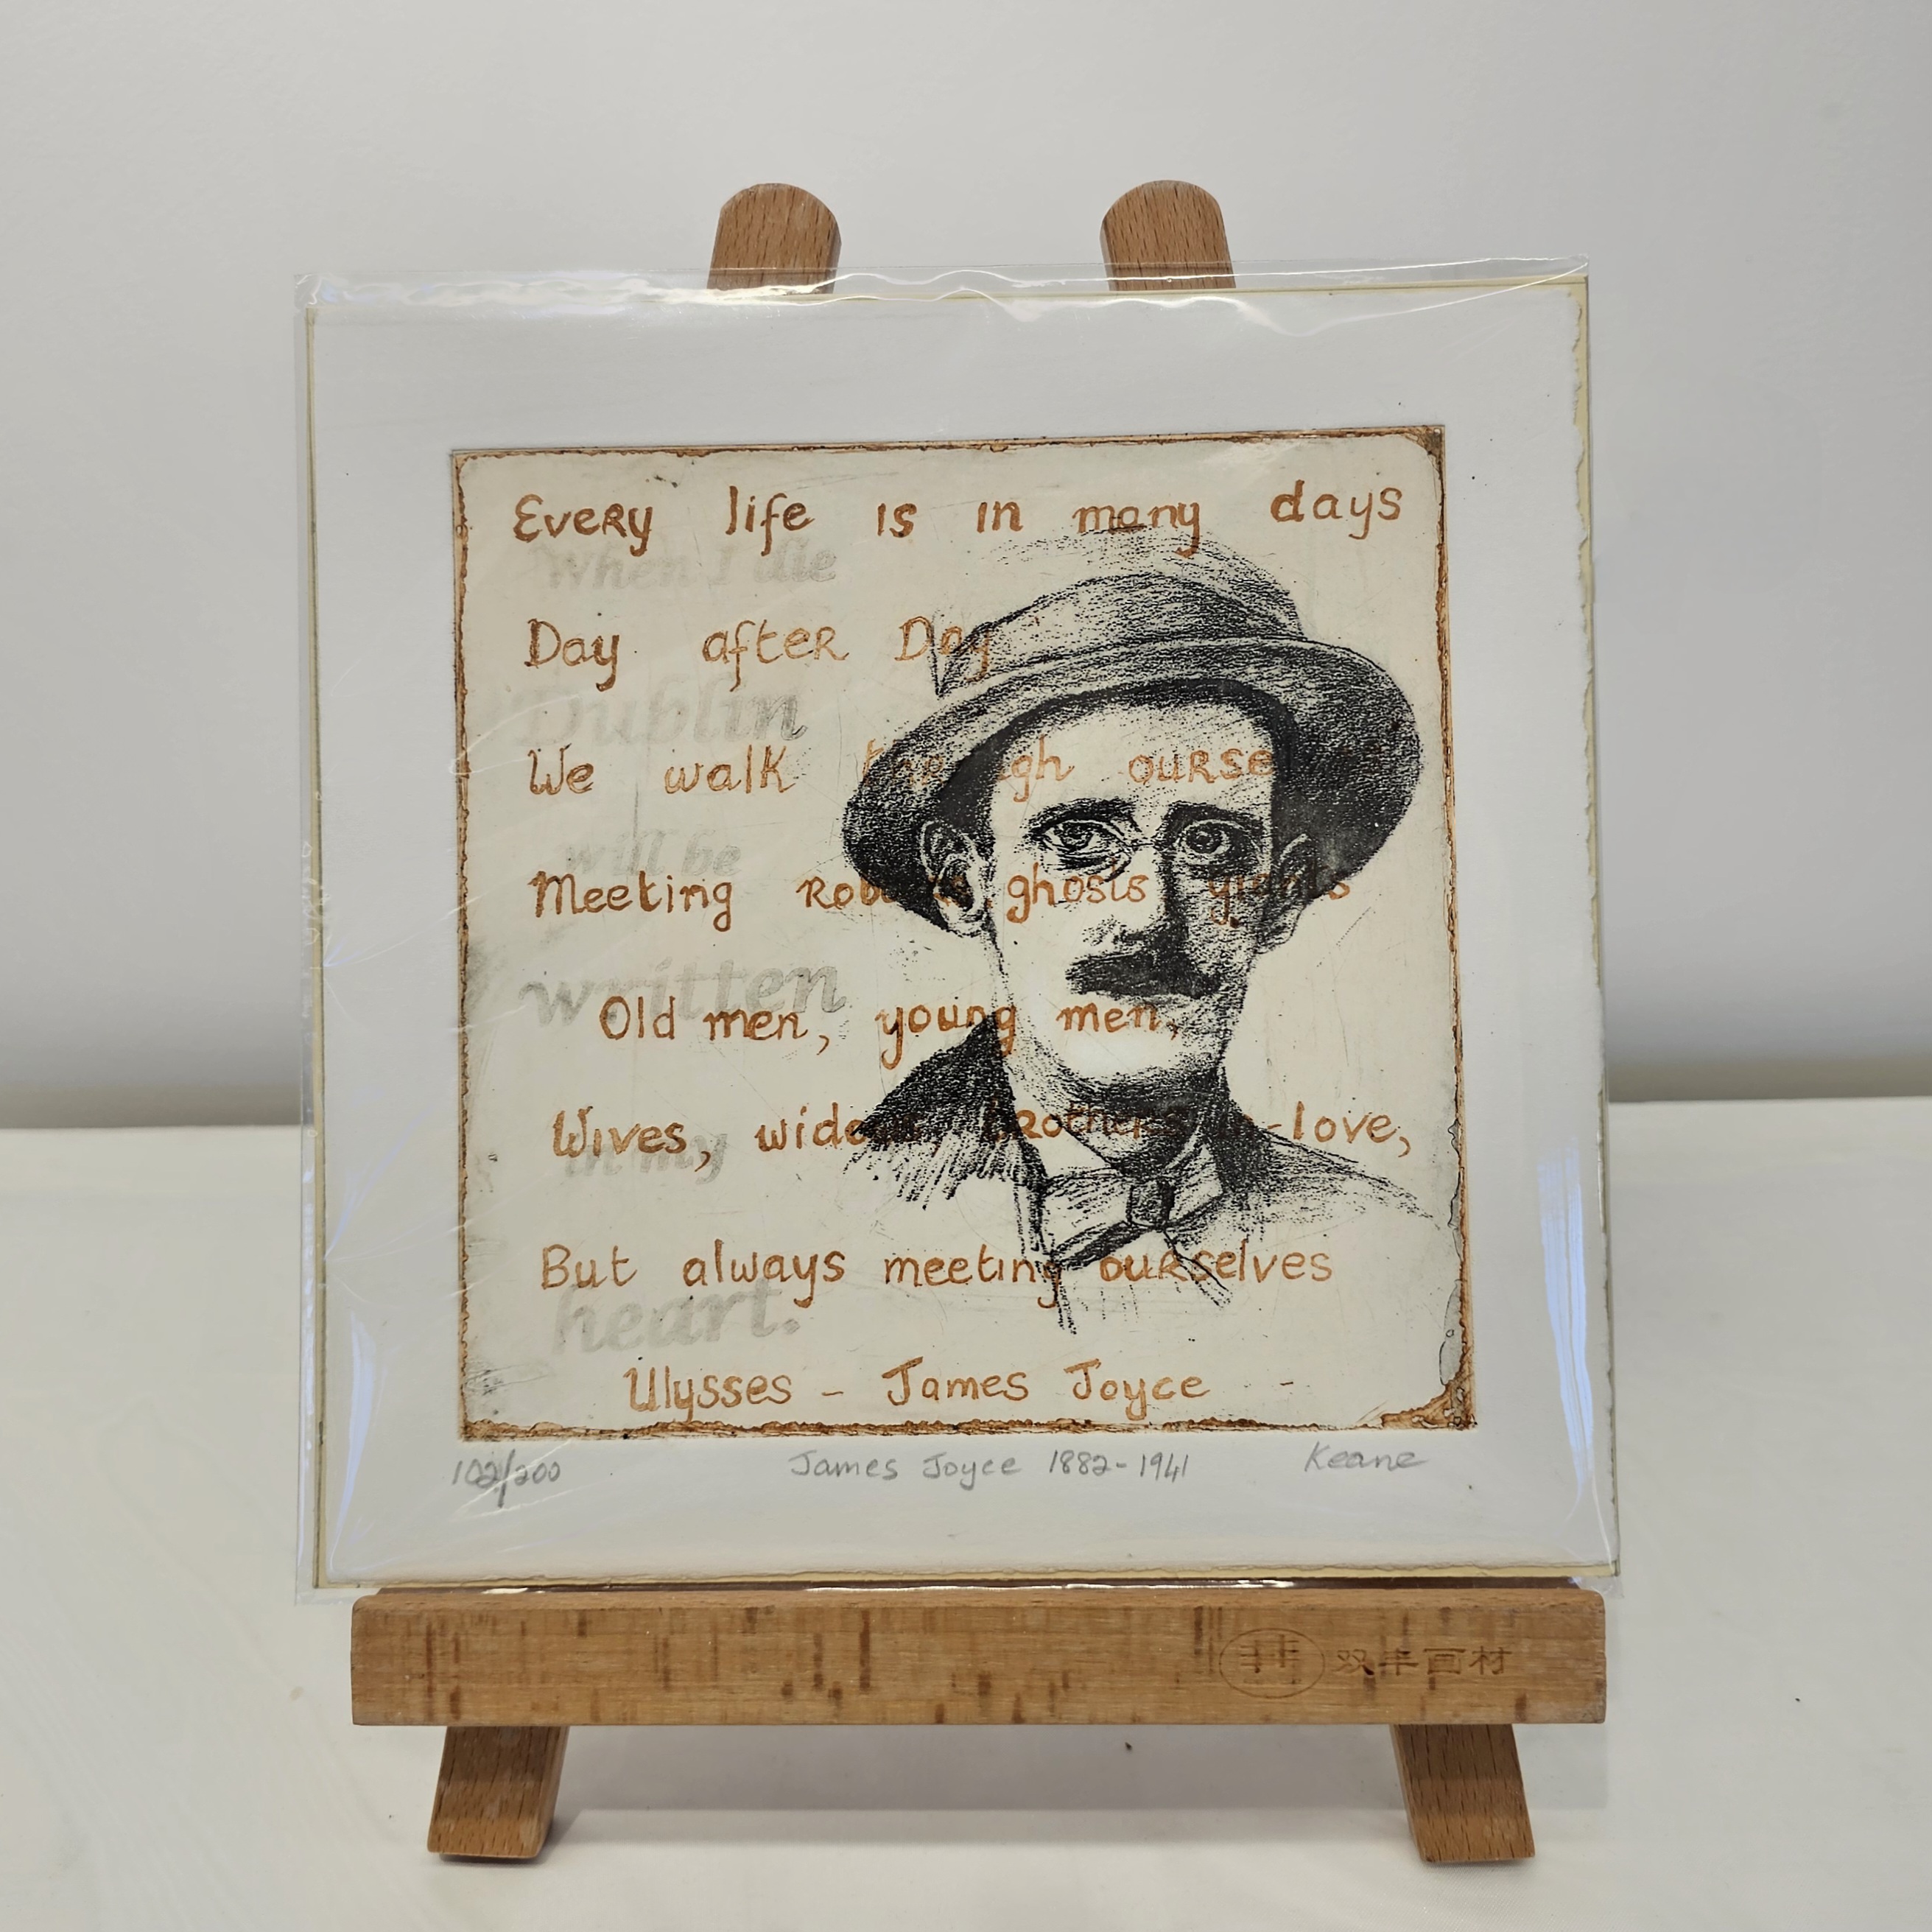 Every life is in many days
When I die
Day after Day
Dublin
We walk through ourselves
will be
Meeting robbers, ghosts giants
written
Old men, young men,
Wives, widows, brothers-in-love,
in my
But always meeting ourselves
heart.
Ulysses - James Joyce -
102/200 James Joyce 1882-1941 Keane
双丰画材